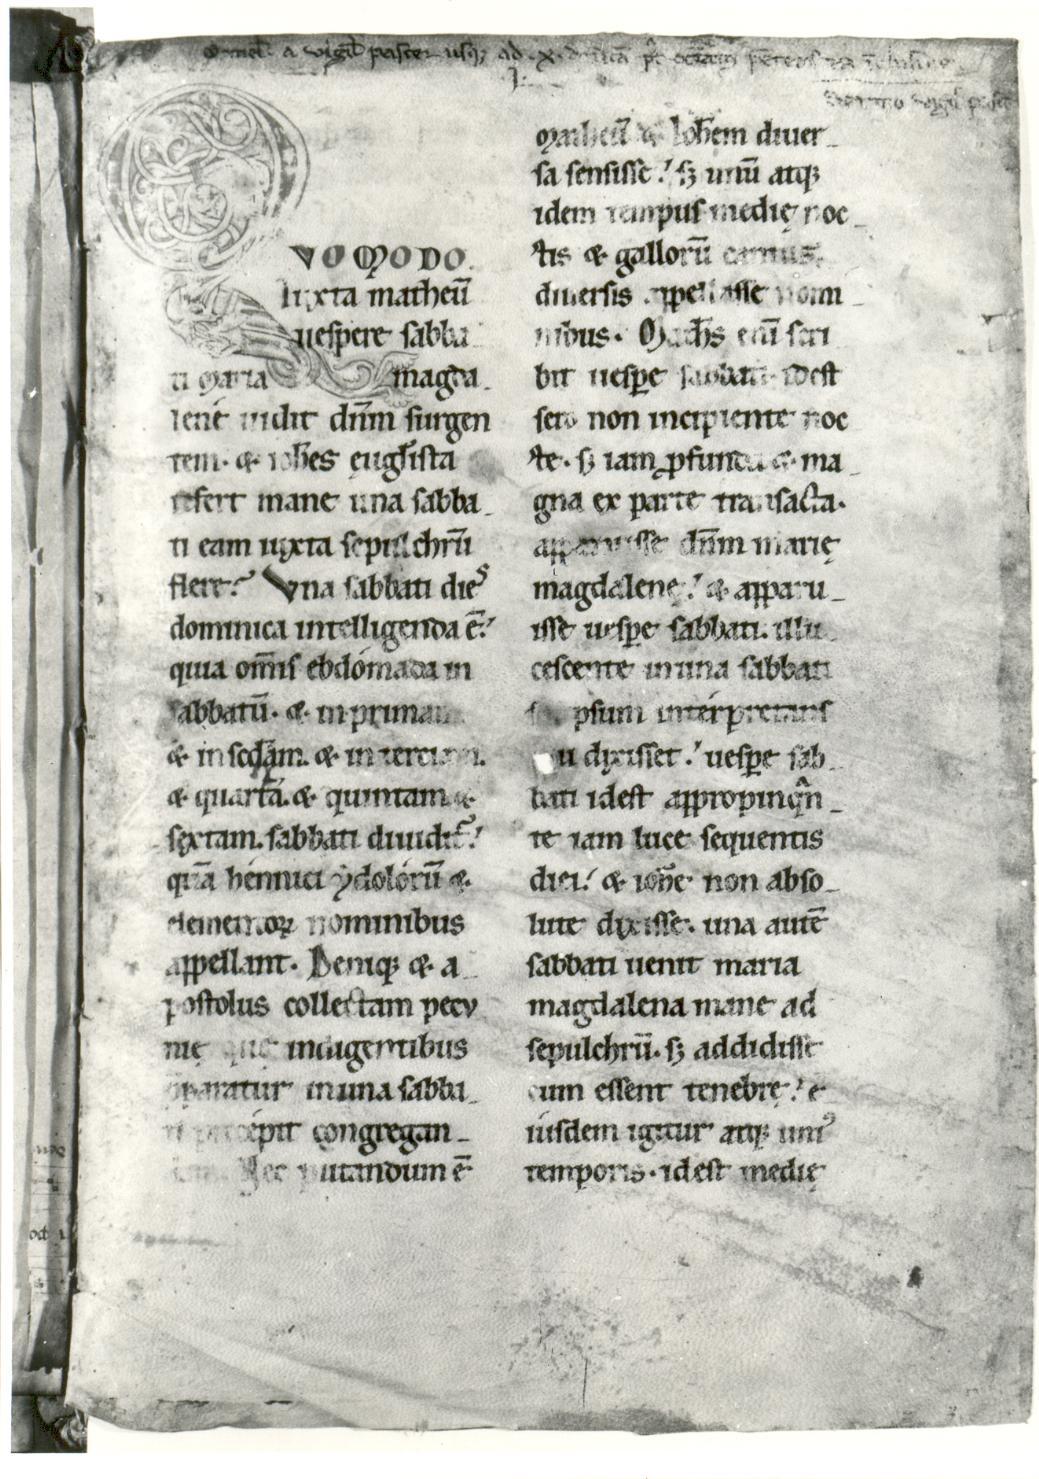 Omel' a vigil' pasce usq; ad
I.
Q
VO MODO.
Iuxta matheū
uespere sabba
ti maria magda
lene uidit dn̄m surgen
tem. & ioh̄es eugl̄ista
refert mane una sabba
ti eam iuxta sepulchrū
flere? Vna sabbati dies
dominica intelligenda ē.
quia om̄is ebdómada in
sabbatū. & in primam
& in scd̄am. & in terciam.
& quartā. & quintam &
sextam. sabbati diuidit̄.
quā héthnici ydolórū &
elementoꝝ nominibus
appellant. Deniq; & a
postolus collectam pecu
nię que indigentibus
paratur in una sabba
ti precépit congregan
Nec putandum ē
Matheū & Ioh̄em diuer
sa sensisse. sꝫ unū atq;
idem tempus medię noc
tis & gallorū cantus,
diuersis appellasse nomi
nibus. Math̄s enī scri
bit uesꝑe sabbati. idest
sero non incipiente noc
te. sꝫ iam ꝓfunda & ma
gna ex parte transacta.
apparuisse dn̄m marię
magdalenę. & apparu
isse uesꝑe sabbati. illu
cescente in una sabbati
psum intérpretans
dixisset. uesꝑe sab
bati idest appropinq̄n
te iam luce sequentis
diei. & ioh̄e non abso
lute dixisse. una autē
sabbati uenit maria
magdalena mane ad
sepulchrū. sꝫ addidisse
cum essent tenebrę. e
iúsdem igitur atq; uniꝰ
temporis. idest medię